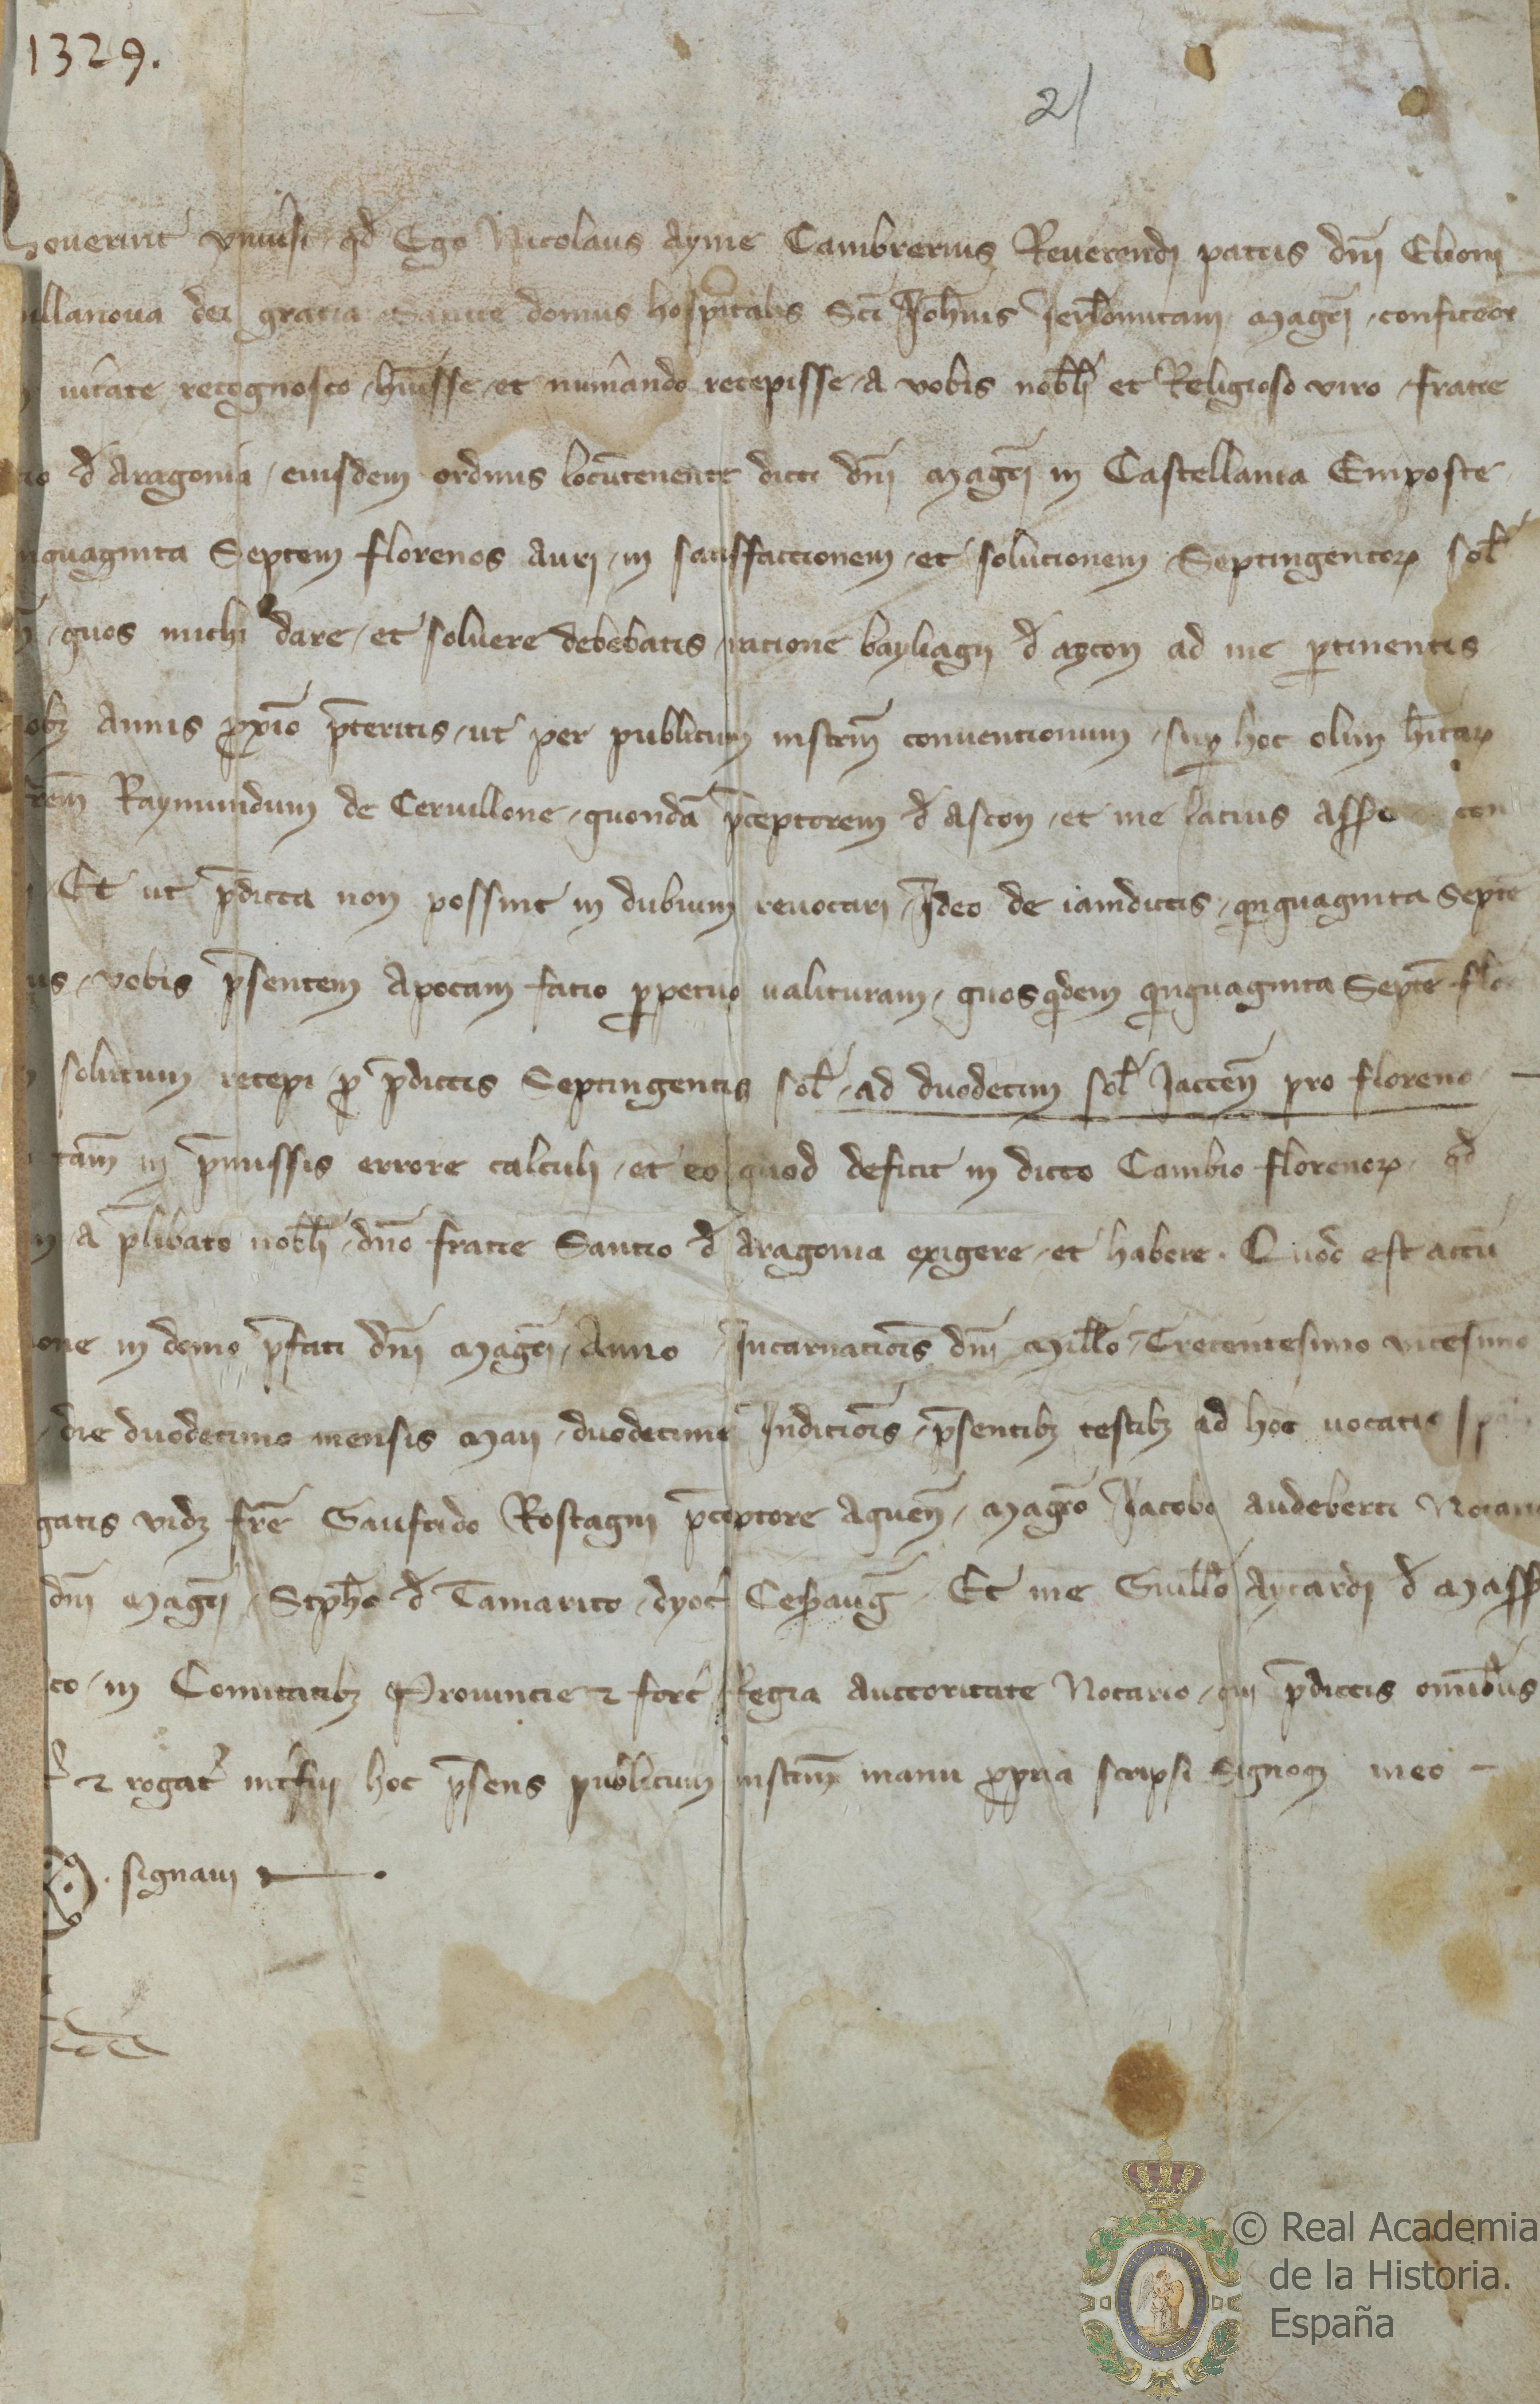 1329.
21
Noverint vniusi qd Ego Nicolaus ayme Cambrerius Reuerendi patris dni Elioni
uillanoua dei gratia Sancte domus hospitalis Sci Johnis Jerlomitani magri confiteor
uitate recognosco huisse et numando recepisse a vobis nobli et Religioso viro fratre
cio d Aragonia eiusdem ordinis locutenente dicti dni magri in Castellania Emposte
nquaginta Septem florenos auri in satisfactionem et solutionem Septingentor sol
quos michi dare et soluere debebatis ratione bayliagii d azcon ad me ptinentis
obz annis pximo pteritis ut per publicum instrm conuentionum sup hoc olim hitar
frem Raymundum de Ceruillone quonda pceptorem d ascon et me latius asse con
Et ut pdicta non possint in dubium reuocari Ideo de iamdictis qinquaginta Septe
us vobis psentem apocam facio ppetuo ualituram quosqdem qinquaginta Septe flor
solutum recepi p pdictis Septingentis sol ad duodecim sol Jaccen pro floreno
tam in pmissis errore calculi et eo quod deficit in dicto Cambio florenor qd
a plibato nobli dno fratre Sancio d Aragonia exigere et habere. Quod est actu
one in domo pfati dni magri Anno Incarnacionis dni millo Trecentesimo vicesimo
die duodecimo mensis maii duodecime Indicionis psentibz testibz ad hoc uocatis
gatis vidz fre Gaufrido Rostagni pceptore aquen magro Jacobo audeberti Notario
dni magri Stpho d Tamarito dyoc Cesaraug Et me Guillo aycardi d mass
co in Comitatibz Prouincie et forc Regia auctoritate Notario qui pdictis omibus
et rogat intfui hoc psens publicum instrm manu ppria scripsi Signoqz meo
signaui
© Real Academia
de la Historia.
España